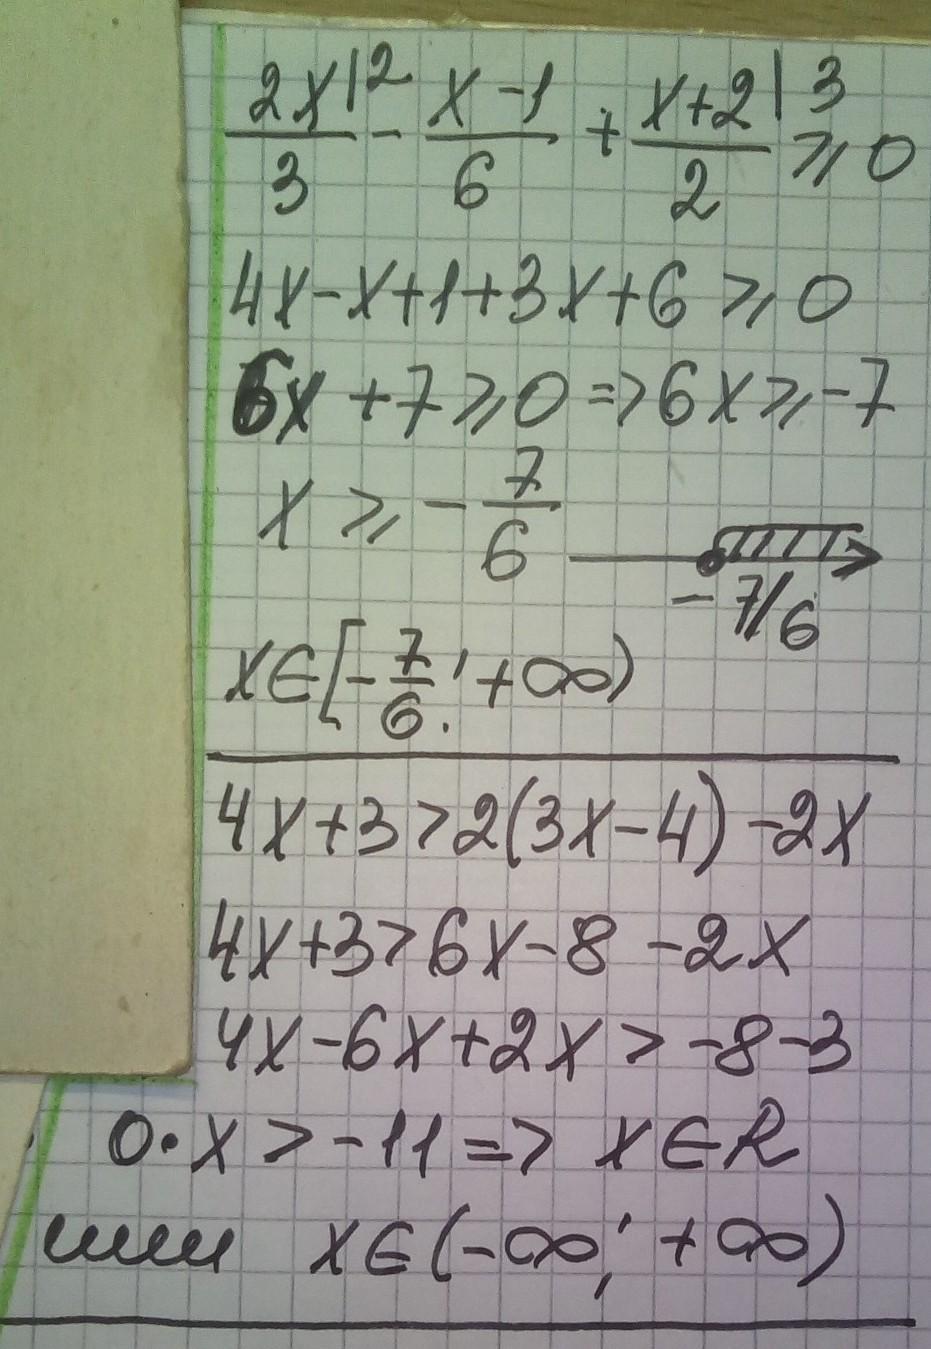 2x|2/3 - x-1/6 + x+2|3/2 ⩾ 0
4x-x+1+3x+6 ⩾ 0
6x +7⩾0 => 6x⩾-7
x ⩾ - 7/6
-7/6
x∈[-7/6; +∞)
4x+3>2(3x-4) -2x
4x+3>6x-8 -2x
4x-6x+2x > -8-3
0·x > -11 => x∈R
или x∈(-∞; +∞)